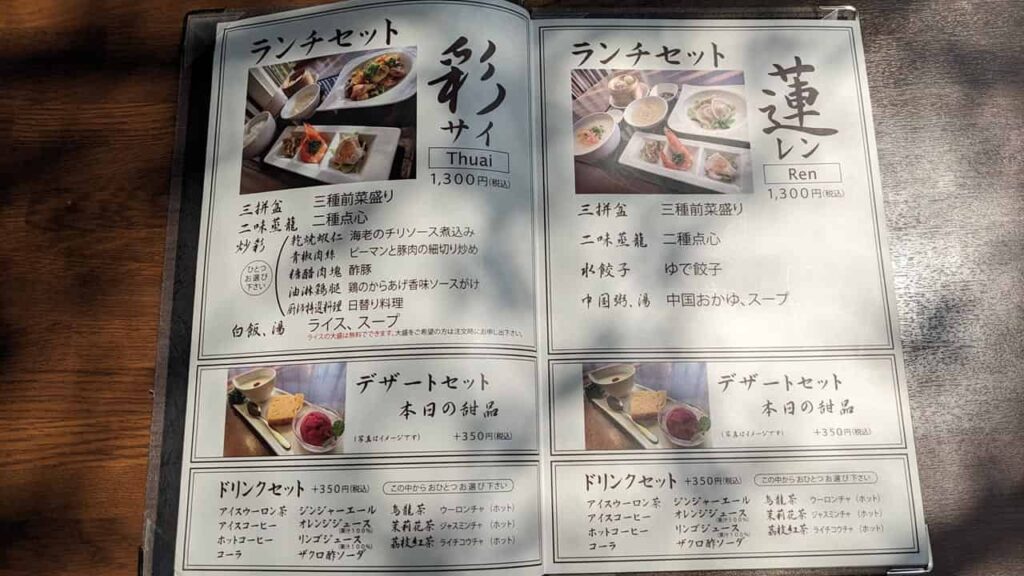 ランチセット
彩
サイ
Thuai
1,300円(税込)
三拼盆 三種前菜盛り
二味蒸籠 二種点心
炒彩
ひとつ
お選び
下さい
乾焼蝦仁 海老のチリソース煮込み
青椒肉絲 ピーマンと豚肉の細切り炒め
糖醋肉塊 酢豚
油淋鶏腿 鶏のからあげ香味ソースがけ
厨師特選料理 日替り料理
白飯、湯 ライス、スープ
ライスの大盛は無料でできます。大盛をご希望の方は注文時にお申し出下さい。
デザートセット
本日の甜品
(写真はイメージです) +350円(税込)
ドリンクセット +350円(税込) この中から おひとつ お選び 下さい
アイスウーロン茶 ジンジャーエール 烏龍茶 ウーロンチャ (ホット)
アイスコーヒー オレンジジュース (果汁100%) 茉莉花茶 ジャスミンチャ (ホット)
ホットコーヒー リンゴジュース (果汁100%) 荔枝紅茶 ライチコウチャ (ホット)
コーラ ザクロ酢ソーダ
ランチセット
蓮
レン
Ren
1,300円(税込)
三拼盆 三種前菜盛り
二味蒸籠 二種点心
水餃子 ゆで餃子
中国粥、湯 中国おかゆ、スープ
デザートセット
本日の甜品
(写真はイメージです) +350円(税込)
ドリンクセット +350円(税込) この中から おひとつ お選び 下さい
アイスウーロン茶 ジンジャーエール 烏龍茶 ウーロンチャ (ホット)
アイスコーヒー オレンジジュース (果汁100%) 茉莉花茶 ジャスミンチャ (ホット)
ホットコーヒー リンゴジュース (果汁100%) 荔枝紅茶 ライチコウチャ (ホット)
コーラ ザクロ酢ソーダ